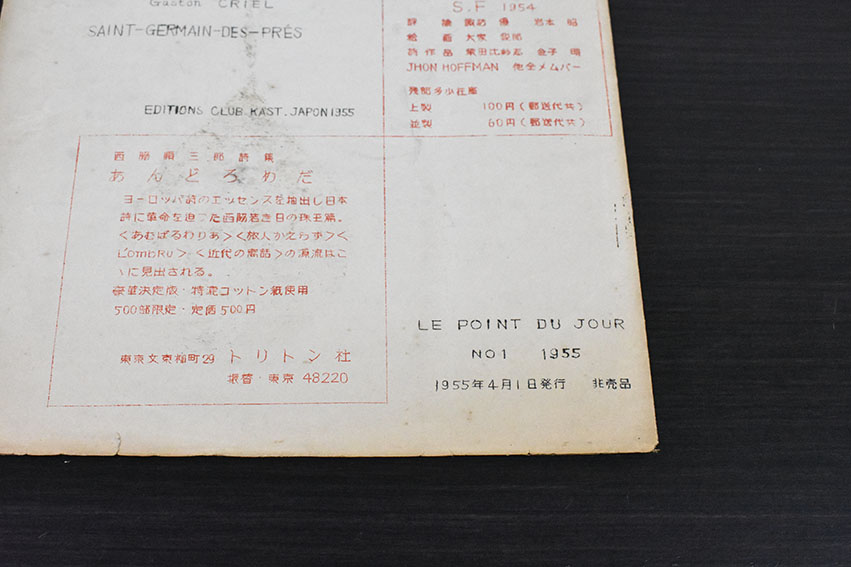 Gaston CRIEL
SAINT-GERMAIN-DES-PRÉS
EDITIONS CLUB KAST. JAPON 1955
S.F 1954
評論 諏訪 優 岩本 昭
絵画 大塚 俊郎
詩作品 金子
JHON HOFFMAN 他全メムバー
残部多少在庫
上製 100円(郵送代共)
並製 60円(郵送代共)
西脇順三郎詩集
あんどろめだ
ヨーロッパ詩のエッセンスを抽出し日本
詩に革命を迫った西脇若き日の珠玉篇。
<あむばるわりあ><旅人かえらず><
L'ombRe><近代の寓話>の源流はこ
ゝに見出される。
豪華決定版・特漉コットン紙使用
500部限定・定価500円
東京文京 町29 トリトン社
振替・東京 48220
LE POINT DU JOUR
NO1 1955
1955年4月1日発行 非売品